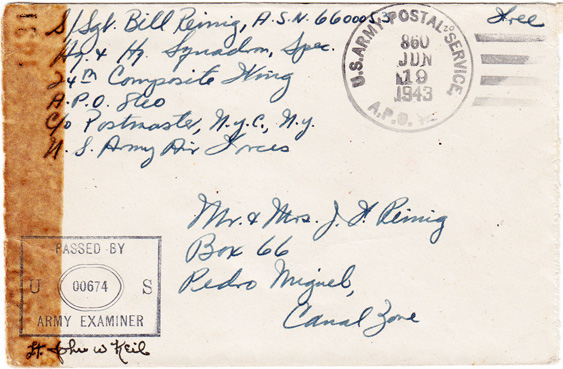 S/Sgt. Bill Reinig, A.S.N. 6600053
Hq. & Hq. Squadron, Spec.
24th Composite Wing
A.P.O. 860
c/o Postmaster, N.Y.C., N.Y.
U. S. Army Air Forces
U.S. ARMY POSTAL SERVICE
860
JUN
19
1943
A.P.O.
Free
Mr. & Mrs. J. H. Reinig
Box 66
Pedro Miguel,
Canal Zone
PASSED BY
U 00674 S
ARMY EXAMINER
Lt. John W Keil